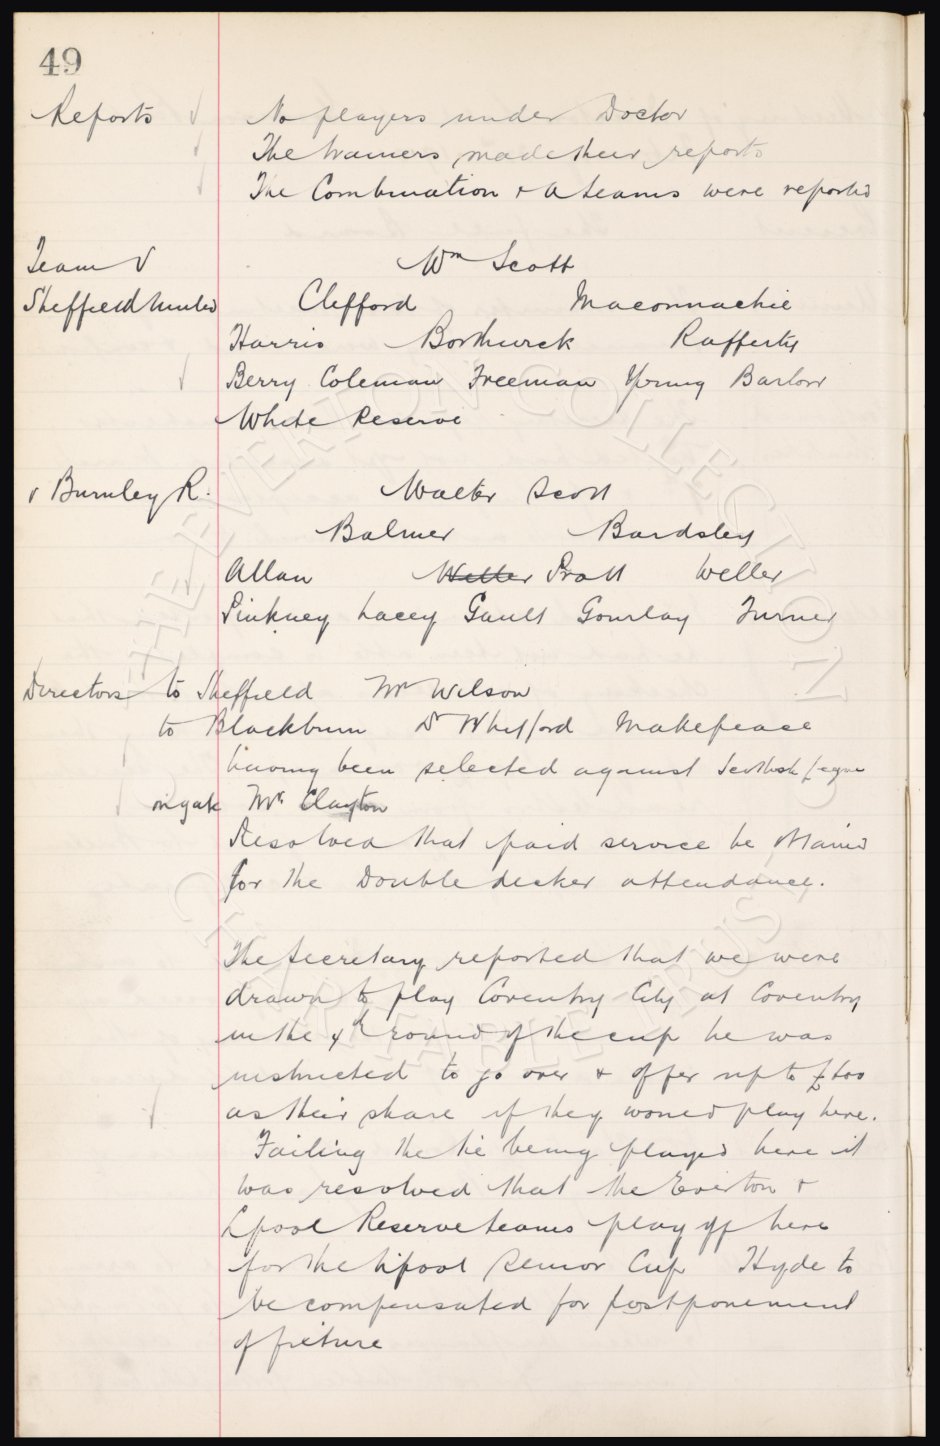 49
Reports No players under Doctor
The trainers made their reports
The Combination & A teams were reported
Team v Wm Scott
Sheffield United Clifford Maconnachie
Harris Borthwick Rafferty
Berry Coleman Freeman Young Barlow
White Reserve
v Burnley R. Walter Scott
Balmer Bardsley
Allan Weller Pratt Weller
Pinkney Lacey Gault Gourlay Turner
Directors to Sheffield Mr Wilson
to Blackburn Dr Whitford Makepeace
having been selected against Scottish League
on gate Mr Clayton
Resolved that paid service be obtained
for the Double decker attendance.
The Secretary reported that we were
drawn to play Coventry City at Coventry
in the 4th round of the cup he was
instructed to go over & offer up to
as their share if they would play here.
Failing the tie being played here it
was resolved that the Everton &
Lpool Reserve teams play off here
for the Lipool Senior Cup Hyde to
be compensated for postponement
of fixture
THE EVERTON COLLECTION
CHARITABLE TRUST